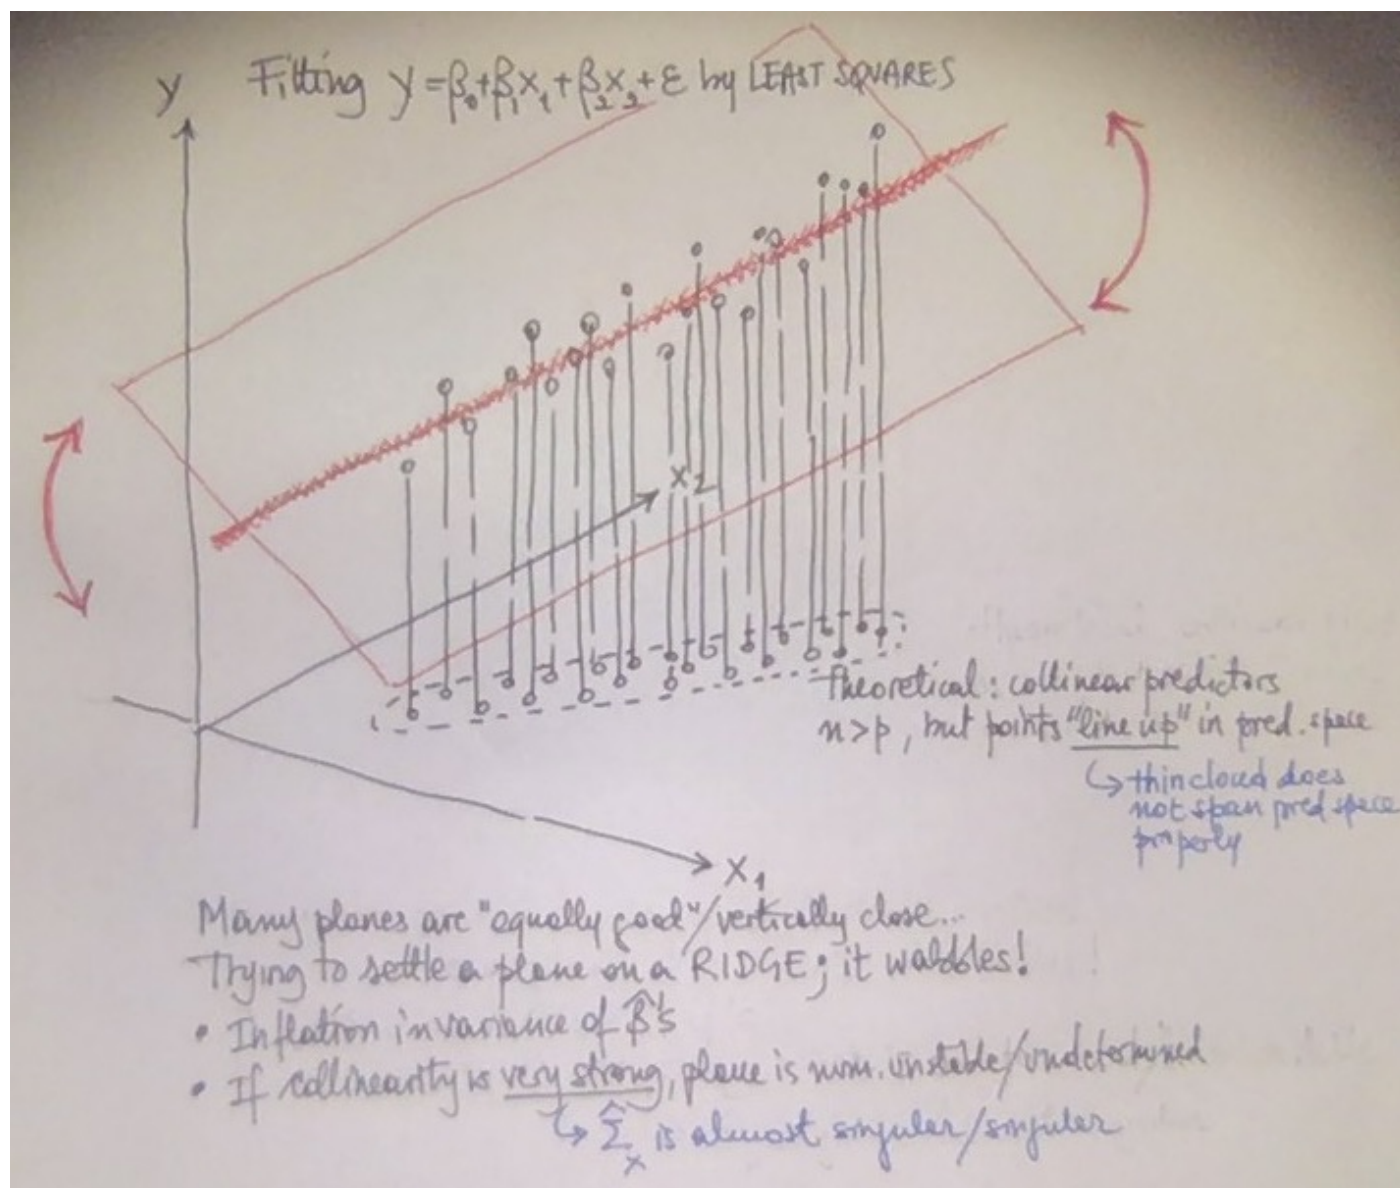 y
Fitting y = β₀+β₁x₁+β₂x₂+ε by LEAST SQUARES
x₂
Theoretical: collinear predictors
n>p, but points "line up" in pred. space
↳ thin cloud does
not span pred space
properly
x₁
Many planes are "equally good"/vertically close...
Trying to settle a plane on a RIDGE; it wabbles!
• Inflation in variance of β̂'s
• If collinearity is very strong, plane is num. unstable/undetermined
↳ Σ̂ₓ is almost singular/singular